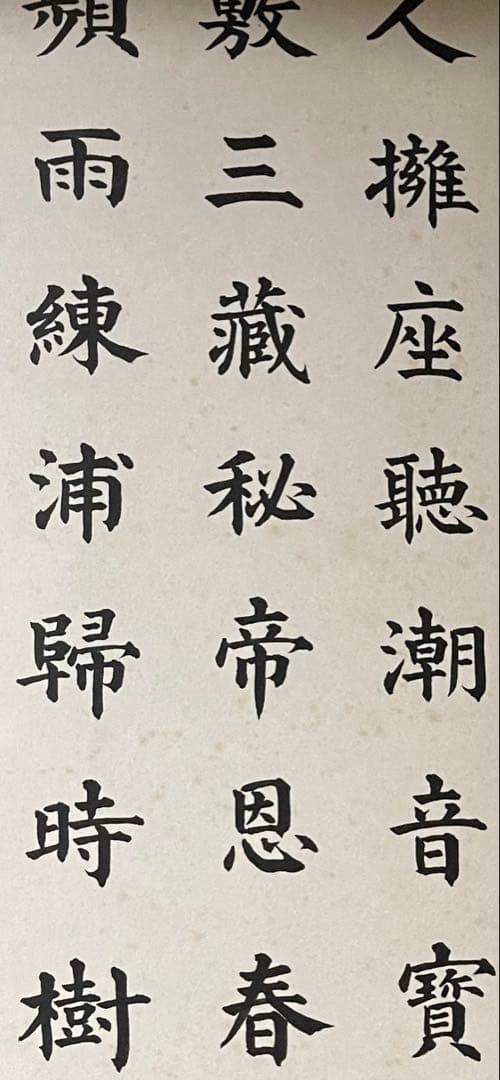 人擁座聽潮音寶
敷三藏秘帝恩春
蘋雨練浦歸時樹